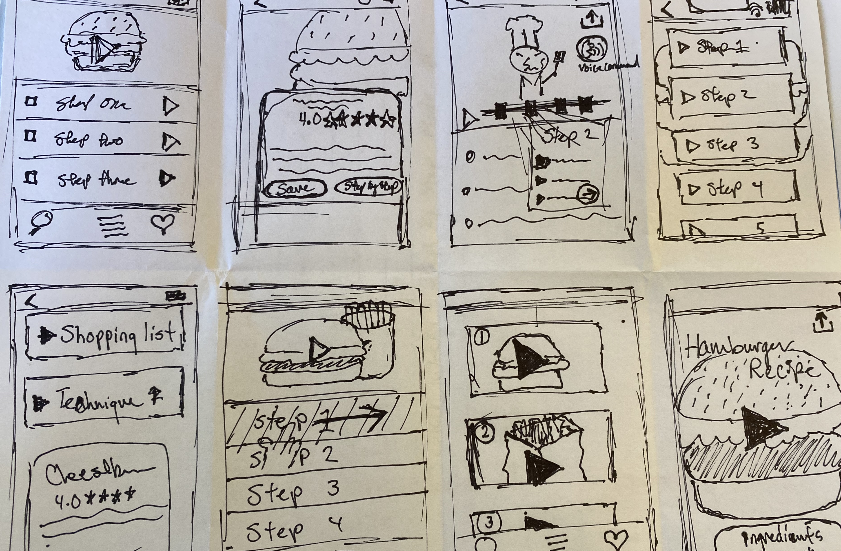 Step one
Step two
Step three
4.0
Save
Step by step
Voice command
Step 2
Step 1
Step 2
Step 3
Step 4
5
Shopping list
Technique
4.0
Step 1
Step 2
Step 3
Step 4
1
2
3
Hamburger
Recipe
Ingredients